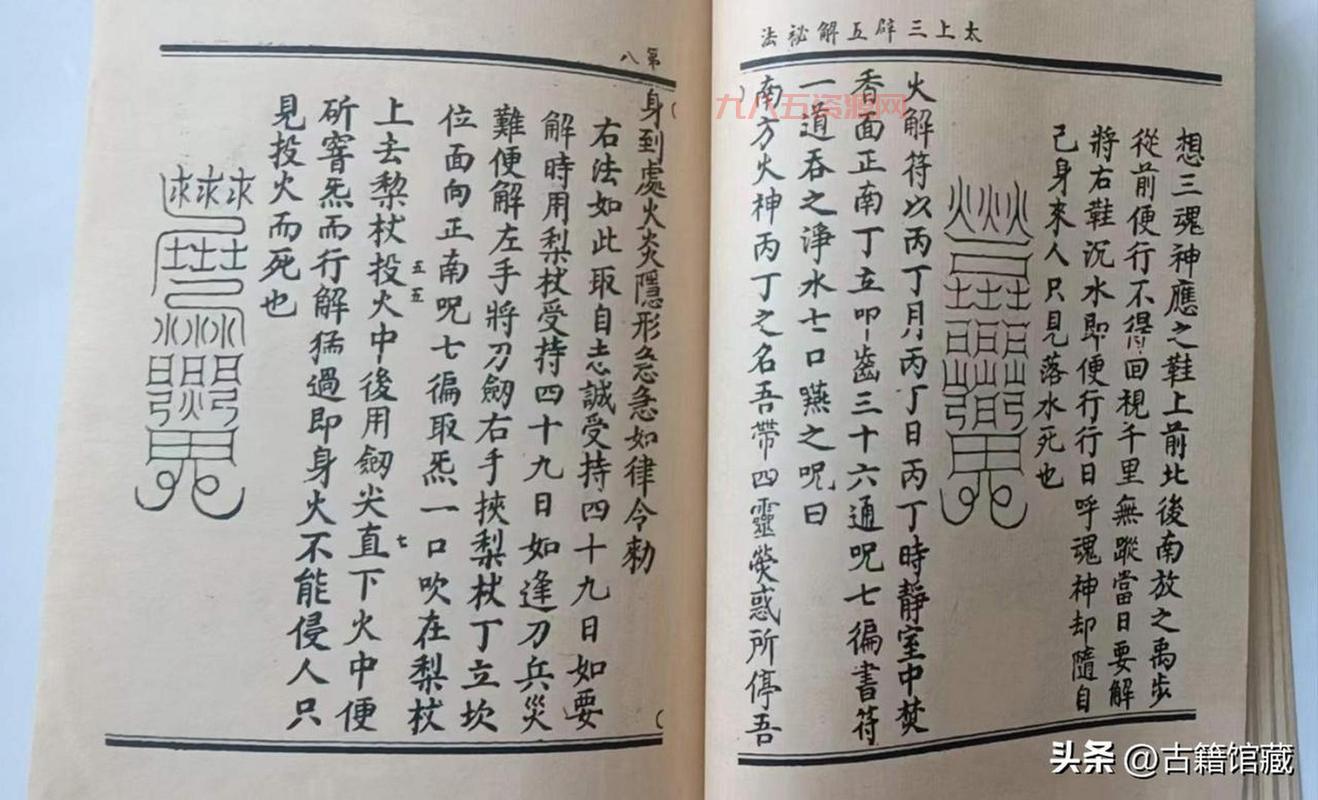 太上三辟五解祕法
想三魂神應之鞋上前北後南放之禹步
從前便行不得回視千里無蹤當日要解
將右鞋沉水即便行行日呼魂神却隨自
己身來人只見落水死也
火解符以丙丁月丙丁日丙丁時靜室中焚
香面正南丁立叩齒三十六通呪七徧書符
一道吞之淨水七口噀之呪曰
南方火神丙丁之名吾帶四靈熒惑所停吾
第八
身到處火炎隱形急急如律令勑
右法如此取自志誠受持四十九日如要
解時用梨杖受持四十九日如逢刀兵災
難便解左手將刀劒右手挾梨杖丁立坎
位面向正南呪七徧取炁一口吹在梨杖
上去梨杖投火中後用劒尖直下火中便
斫窨炁而行解猛過即身火不能侵人只
見投火而死也
五五
七
九八五资源网
头条 @古籍馆藏